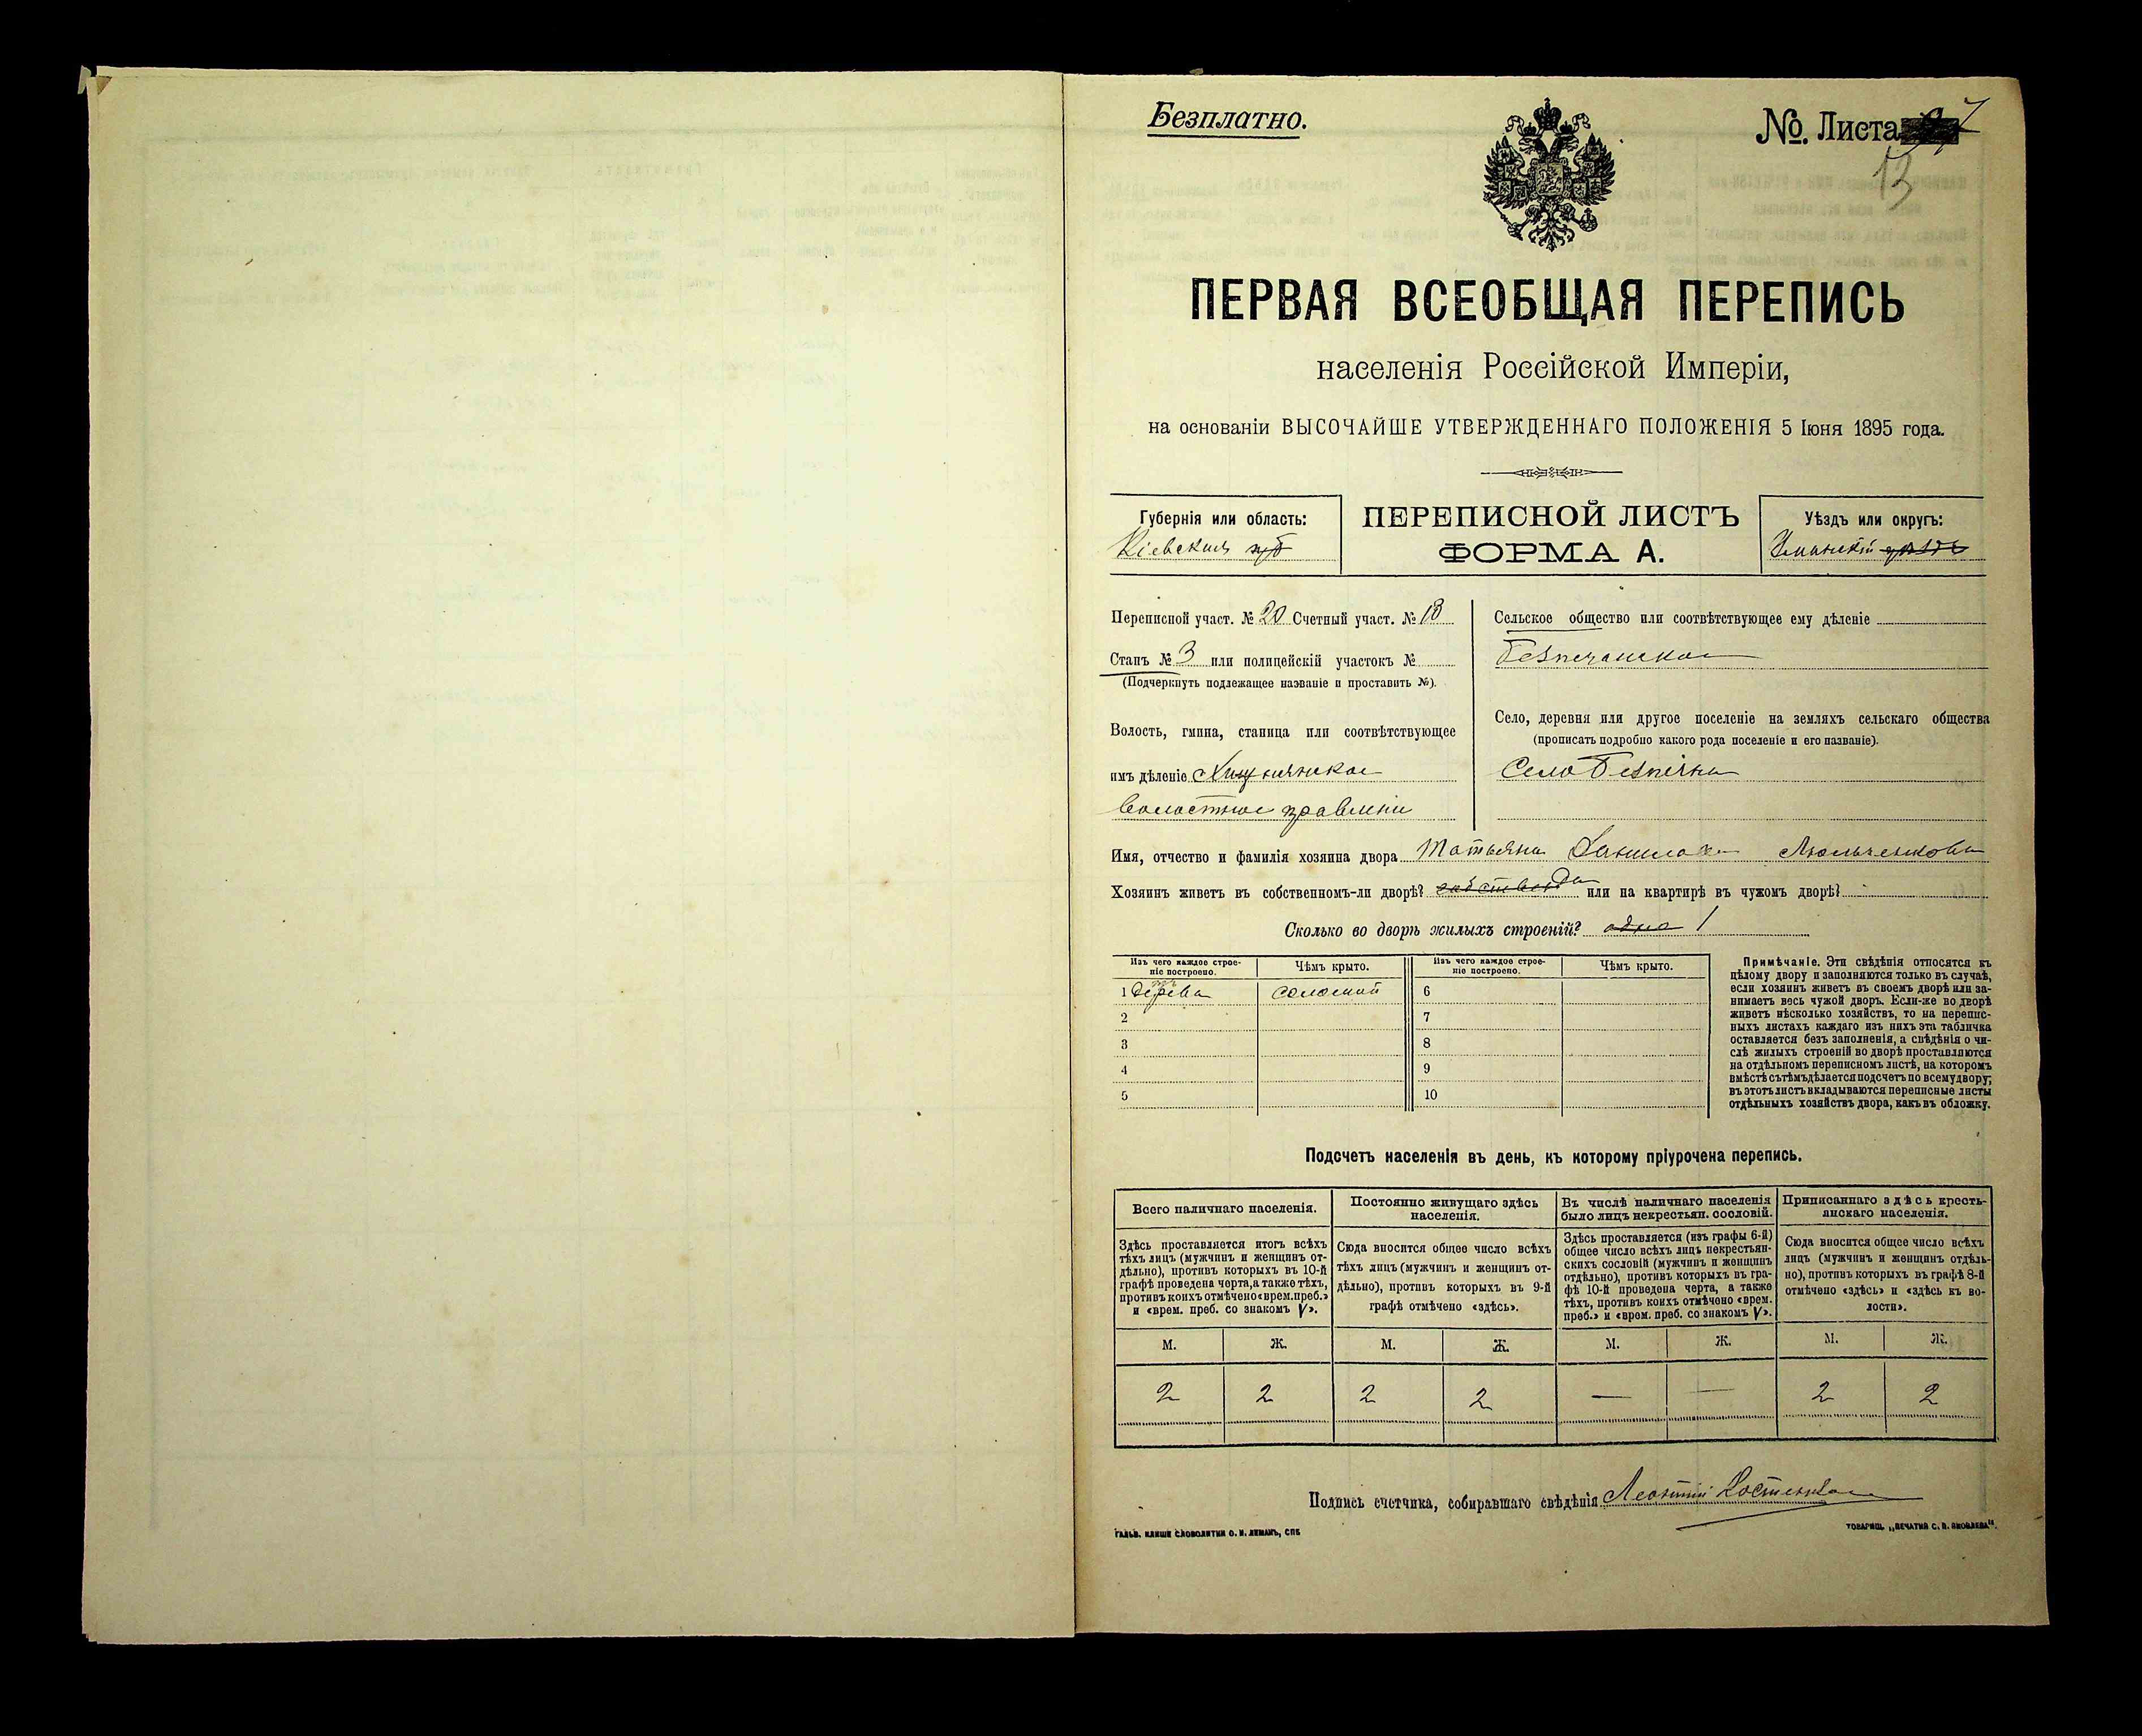 Безплатно.
№. Листа 7
13
ПЕРВАЯ ВСЕОБЩАЯ ПЕРЕПИСЬ
населенія Россійской Имперіи,
на основаніи ВЫСОЧАЙШЕ УТВЕРЖДЕННАГО ПОЛОЖЕНІЯ 5 Іюня 1895 года.
Губернія или область:
Кіевская губ
ПЕРЕПИСНОЙ ЛИСТЪ
ФОРМА А.
Уѣздъ или округъ:
Уманскій уѣздъ
Переписной участ. № 20 Счетный участ. № 18
Станъ № 3 или полицейскій участокъ №
(Подчеркнуть подлежащее названіе и проставить №).
Волость, гмина, станица или соотвѣтствующее
имъ дѣленіе
волостное правленіе
Сельское общество или соотвѣтствующее ему дѣленіе
Безпечанское
Село, деревня или другое поселеніе на земляхъ сельскаго общества
(прописать подробно какого рода поселеніе и его названіе).
Село Безпечна
Имя, отчество и фамилія хозяина двора Татьяна Люльченкова
Хозяинъ живетъ въ собственномъ-ли дворѣ? да или на квартирѣ въ чужомъ дворѣ?
Сколько во дворѣ жилыхъ строеній? одно 1
Изъ чего каждое строе-
ніе построено.
Чѣмъ крыто.
Изъ чего каждое строе-
ніе построено.
Чѣмъ крыто.
1 дерева соломой
2
3
4
5
6
7
8
9
10
Примѣчаніе. Эти свѣдѣнія относятся къ
цѣлому двору и заполняются только въ случаѣ,
если хозяинъ живетъ въ своемъ дворѣ или за-
нимаетъ весь чужой дворъ. Если-же во дворѣ
живетъ нѣсколько хозяйствъ, то на перепис-
ныхъ листахъ каждаго изъ нихъ эта табличка
оставляется безъ заполненія, а свѣдѣнія о чи-
слѣ жилыхъ строеній во дворѣ проставляются
на отдѣльномъ переписномъ листѣ, на которомъ
вмѣстѣ съ тѣмъ дѣлается подсчетъ по всему двору;
въ этотъ листъ вкладываются переписные листы
отдѣльныхъ хозяйствъ двора, какъ въ обложку.
Подсчетъ населенія въ день, къ которому пріурочена перепись.
Всего наличнаго населенія.
Постоянно живущаго здѣсь
населенія.
Въ числѣ наличнаго населенія
было лицъ некрестьян. сословій.
Приписаннаго здѣсь кресть-
янскаго населенія.
Здѣсь проставляется итогъ всѣхъ
тѣхъ лицъ (мужчинъ и женщинъ от-
дѣльно), противъ которыхъ въ 10-й
графѣ проведена черта, а также тѣхъ,
противъ коихъ отмѣчено «врем. преб.»
и «врем. преб. со знакомъ V».
Сюда вносится общее число всѣхъ
тѣхъ лицъ (мужчинъ и женщинъ от-
дѣльно), противъ которыхъ въ 9-й
графѣ отмѣчено «здѣсь».
Здѣсь проставляется (изъ графы 6-й)
общее число всѣхъ лицъ некрестьян-
скихъ сословій (мужчинъ и женщинъ
отдѣльно), противъ которыхъ въ гра-
фѣ 10-й проведена черта, а также
тѣхъ, противъ коихъ отмѣчено «врем.
преб.» и «врем. преб. со знакомъ V».
Сюда вносится общее число всѣхъ
лицъ (мужчинъ и женщинъ отдѣль-
но), противъ которыхъ въ графѣ 8-й
отмѣчено «здѣсь» и «здѣсь къ во-
лости».
М. Ж. М. Ж. М. Ж. М. Ж.
2 2 2 2 — — 2 2
Подпись счетчика, собиравшаго свѣдѣнія Леонтій Костенко
ГАЛЬВ. КЛИШЕ СЛОВОЛИТНИ О. И. ЛЕМАНЪ, СПБ
ТОВАРИЩ. „ПЕЧАТНЯ С. П. ЯКОВЛЕВА".